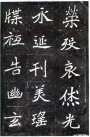 榮歿哀休光
永延刊美瑤
牒祖告幽玄